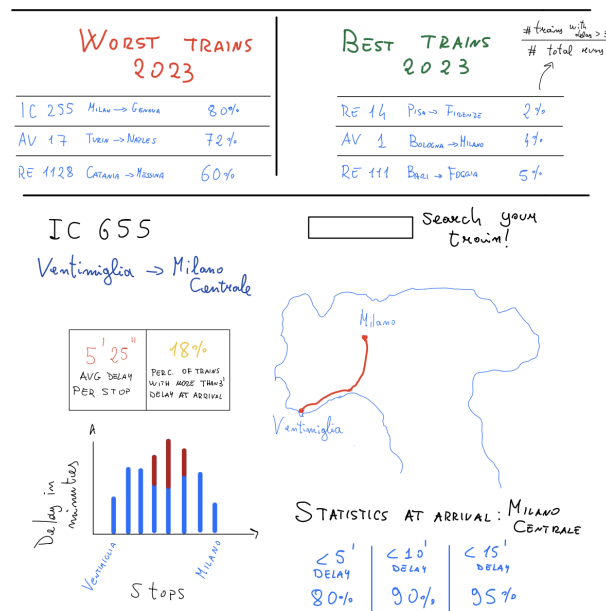 WORST TRAINS
2023
IC 255 MILAN → GENOVA 80%
AV 17 TURIN → NAPLES 72%
RE 1128 CATANIA → MESSINA 60%
BEST TRAINS
2023
# trains with
delay > 3
# total runs
RE 14 PISA → FIRENZE 2%
AV 1 BOLOGNA → MILANO 4%
RE 111 BARI → FOGGIA 5%
IC 655
Ventimiglia → Milano
Centrale
search your
train!
5' 25"
AVG DELAY
PER STOP
18%
PERC. OF TRAINS
WITH MORE THAN 3'
DELAY AT ARRIVAL
Milano
Ventimiglia
A
Delay in
VENTIMIGLIA
MILANO
Stops
STATISTICS AT ARRIVAL: MILANO
CENTRALE
< 5'
DELAY
80%
< 10'
DELAY
90%
< 15'
DELAY
95%